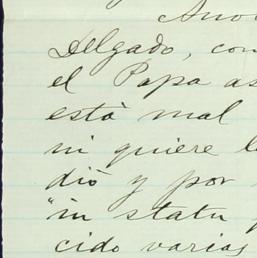 Delgado, con
el Papa as
està mal
ni quiere l
diò y por
"in statu
cido varias